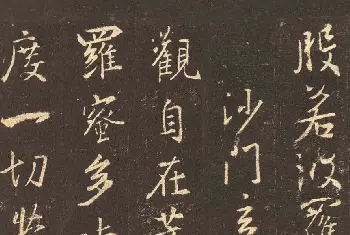 般若波羅
沙門玄
觀自在菩
羅蜜多時
度一切苦